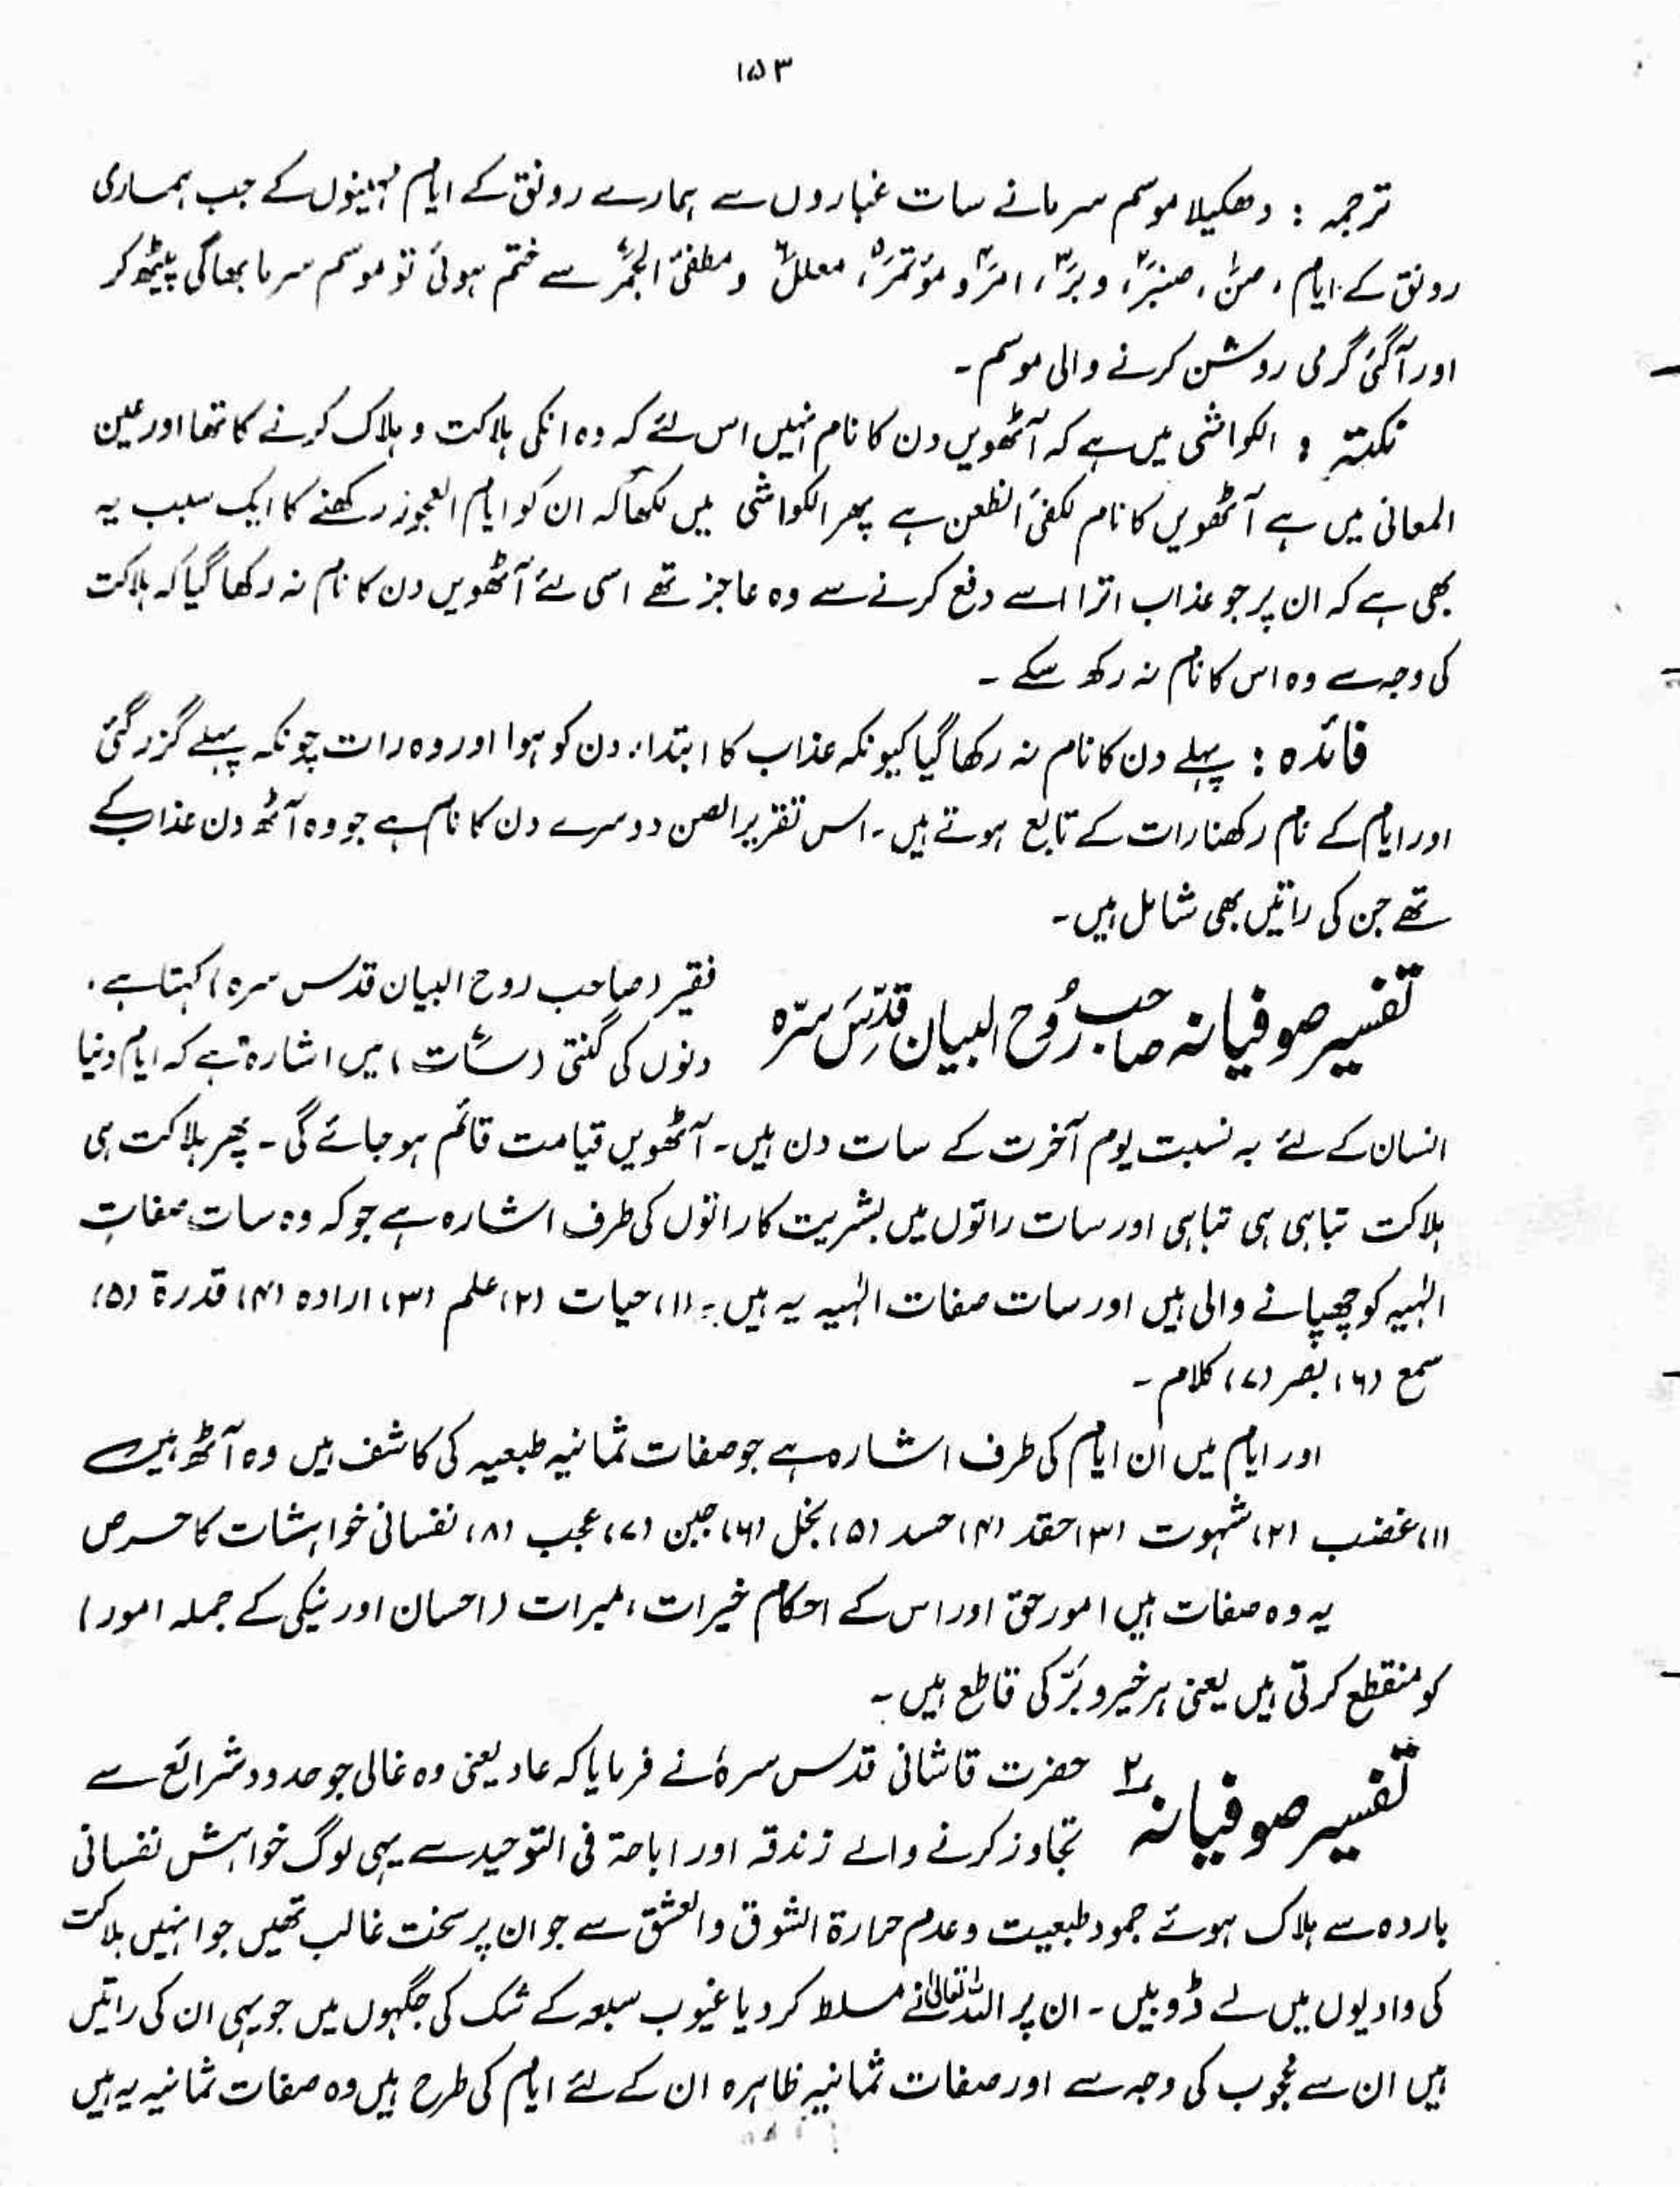 ۱۵۳
ترجمہ : دھکیلا موسم سرمانے سات غباروں سے ہمارے رونق کے ایام مہینوں کے جب ہماری
رونق کے ایام ، صنؐ ، صنبرؐ ، وبرؐ ، امرؐ و موتمرؐ ، معللؐ و مطفیٔ الجمرؐ سے ختم ہوئی تو موسم سرما بھاگی پیٹھ کر
اور آگئی گرمی روشن کرنے والی موسم ۔
نکتہ : الکواشی میں ہے کہ آٹھویں دن کا نام نہیں اس لئے کہ وہ انکی ہلاکت و ہلاک کرنے کا تھا اور عین
المعانی میں ہے آٹھویں کا نام مکفیٔ الظعن ہے پھر الکواشی میں لکھا کہ ان کو ایام العجوز رکھنے کا ایک سبب یہ
بھی ہے کہ ان پر جو عذاب اترا اسے دفع کرنے سے وہ عاجز تھے اسی لئے آٹھویں دن کا نام نہ رکھا گیا کہ ہلاکت
کی وجہ سے وہ اس کا نام نہ رکھ سکے ۔
فائدہ : پہلے دن کا نام نہ رکھا گیا کیونکہ عذاب کا ابتداء دن کو ہوا اور وہ رات چونکہ پہلے گزر گئی
اور ایام کے نام رکھنا رات کے تابع ہوتے ہیں ۔ اس تقریر الصن دوسرے دن کا نام ہے جو وہ آٹھ دن عذاب کے
تھے جن کی راتیں بھی شامل ہیں ۔
تفسیر صوفیانہ صاحب رُوح البیان قدّسَ سرّہ
فقیر (صاحب روح البیان قدس سرہ) کہتا ہے ،
دنوں کی گنتی (سات) میں اشارۃ ہے کہ ایام دنیا
انسان کے لئے بہ نسبت یوم آخرت کے سات دن ہیں ۔ آٹھویں قیامت قائم ہو جائے گی ۔ پھر ہلاکت ہی
ہلاکت تباہی ہی تباہی اور سات راتوں میں بشریت کا راتوں کی طرف اشارہ ہے جو کہ وہ سات صفات
الٰہیہ کو چھپانے والی ہیں اور سات صفات الٰہیہ یہ ہیں :۔ (۱) حیات (۲) علم (۳) ارادہ (۴) قدرۃ (۵)
سمع (۶) بصر (۷) کلام ۔
اور ایام میں ان ایام کی طرف اشارہ ہے جو صفات ثمانیہ طبعیہ کی کاشف ہیں وہ آٹھ ہیں
(۱) غضب (۲) شہوت (۳) حقد (۴) حسد (۵) بخل (۶) جبن (۷) عجب (۸) نفسانی خواہشات کا حرص
یہ وہ صفات ہیں امور حق اور اس کے احکام خیرات ، میرات (احسان اور نیکی کے جملہ امور)
کو منقطع کرتی ہیں یعنی ہر خیر و بَرّ کی قاطع ہیں ۔
تفسیر صوفیانہ ۲
حضرت قاشانی قدس سرہٗ نے فرمایا کہ عاد یعنی وہ غالی جو حدود شرائع سے
تجاوز کرنے والے زندقہ اور اباحۃ فی التوحید سے یہی لوگ خواہش نفسانی
باردہ سے ہلاک ہوئے جمود طبعیت و عدم حرارۃ الشوق والعشق سے جو ان پر سخت غالب تھیں جو انہیں ہلاکت
کی وادیوں میں لے ڈوبیں ۔ ان پر اللہ تعالیٰ نے مسلط کر دیا غیوب سبعہ کے شک کی جگہوں میں جو یہی ان کی راتیں
ہیں ان سے محجوب کی وجہ سے اور صفات ثمانیہ ظاہرہ ان کے لئے ایام کی طرح ہیں وہ صفات ثمانیہ یہ ہیں